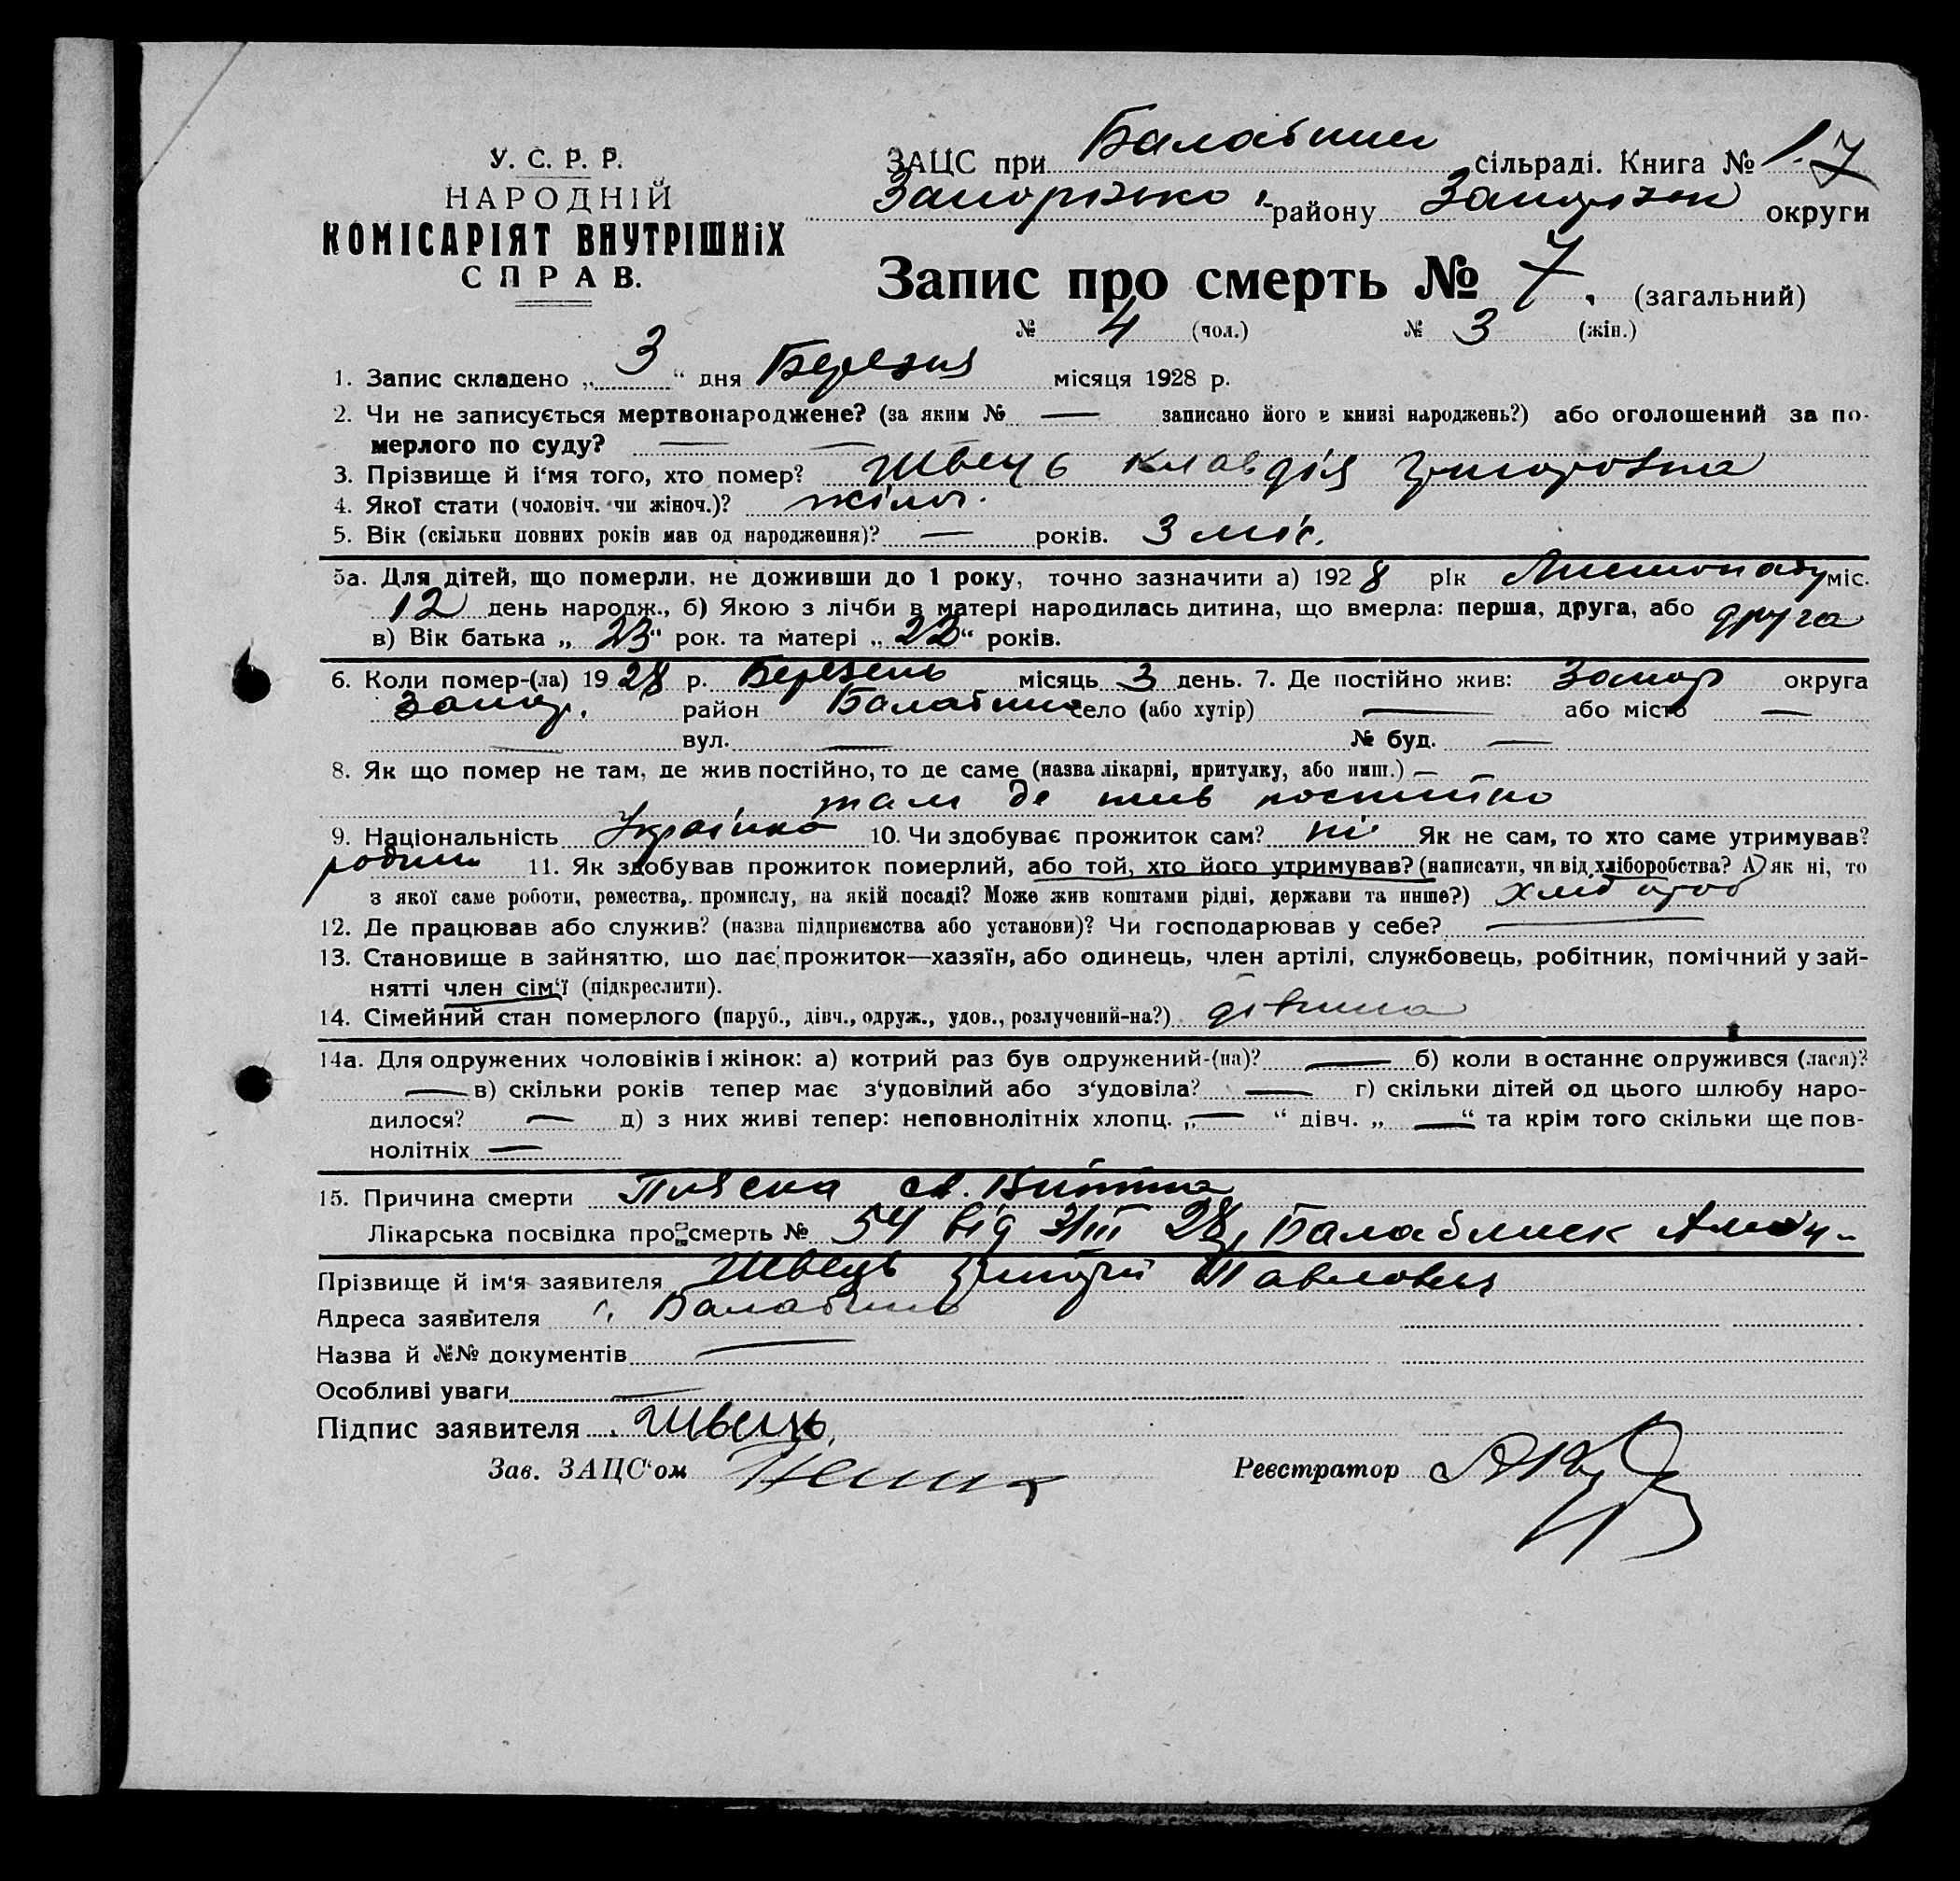 У. С. Р. Р.
НАРОДНІЙ
КОМІСАРІЯТ ВНУТРІШНІХ
СПРАВ.
ЗАЦС при Балабин сільраді. Книга № 1. 7
Запорізько района району Запорізьк округи
Запис про смерть № 7. (загальний)
№ 4 (чол.) № 3 (жін.)
1. Запис складено „ 3 “ дня Березня місяця 1928 р.
2. Чи не записується мертвонароджене? (за яким № — записано його в книзі народжень?) або оголошений за по-
мерлого по суду? —
3. Прізвище й і‘мя того, хто помер? Швець Клавдія Григоровна
4. Якої стати (чоловіч. чи жіноч.)? жіноч.
5. Вік (скільки повних років мав од народження)? — років. 3 міс.
5а. Для дітей, що померли, не доживши до 1 року, точно зазначити а) 1928 рік Листопаду міс.
12 день народж., б) Якою з лічби в матері народилась дитина, що вмерла: перша, друга, або друга
в) Вік батька „ 23 “ рок. та матері „ 22 “ років.
6. Коли помер-(ла) 1928 р. Березень місяць 3 день. 7. Де постійно жив: Запор округа
Запор. район Балабин село (або хутір) — або місто —
— вул. — № буд. —
8. Як що помер не там, де жив постійно, то де саме (назва лікарні, притулку, або инш.) —
там де жив постійно
9. Національність Українка 10. Чи здобуває прожиток сам? ні Як не сам, то хто саме утримував?
родини 11. Як здобував прожиток померлий, або той, хто його утримував? (написати, чи від хліборобства? А як ні, то
з якої саме роботи, ремества, промислу, на якій посаді? Може жив коштами рідні, держави та инше?) хлібороб
12. Де працював або служив? (назва підприємства або установи)? Чи господарював у себе? —
13. Становище в зайняттю, що дає прожиток—хазяїн, або одинець, член артілі, службовець, робітник, помічний у зай-
нятті член сім‘ї (підкреслити).
14. Сімейний стан померлого (паруб., дівч., одруж., удов., розлучений-на?) дівчина
14а. Для одружених чоловіків і жінок: а) котрий раз був одружений-(на)? — б) коли востаннє одружився (лася)?
— в) скільки років тепер має з‘удовілий або з‘удовіла? — г) скільки дітей од цього шлюбу наро-
дилося? — д) з них живі тепер: неповнолітніх хлопц. „ — “ дівч. „ — “ та крім того скільки ще пов-
нолітніх —
15. Причина смерти Пляска св. Витта
Лікарська посвідка про смерть № 54 від 3/III 28, Балаблиск
Прізвище й ім‘я заявителя Швець Григорій Павлович
Адреса заявителя с. Балабино
Назва й №№ документів —
Особливі уваги —
Підпис заявителя Швець
Зав. ЗАЦС‘ом Реєстратор